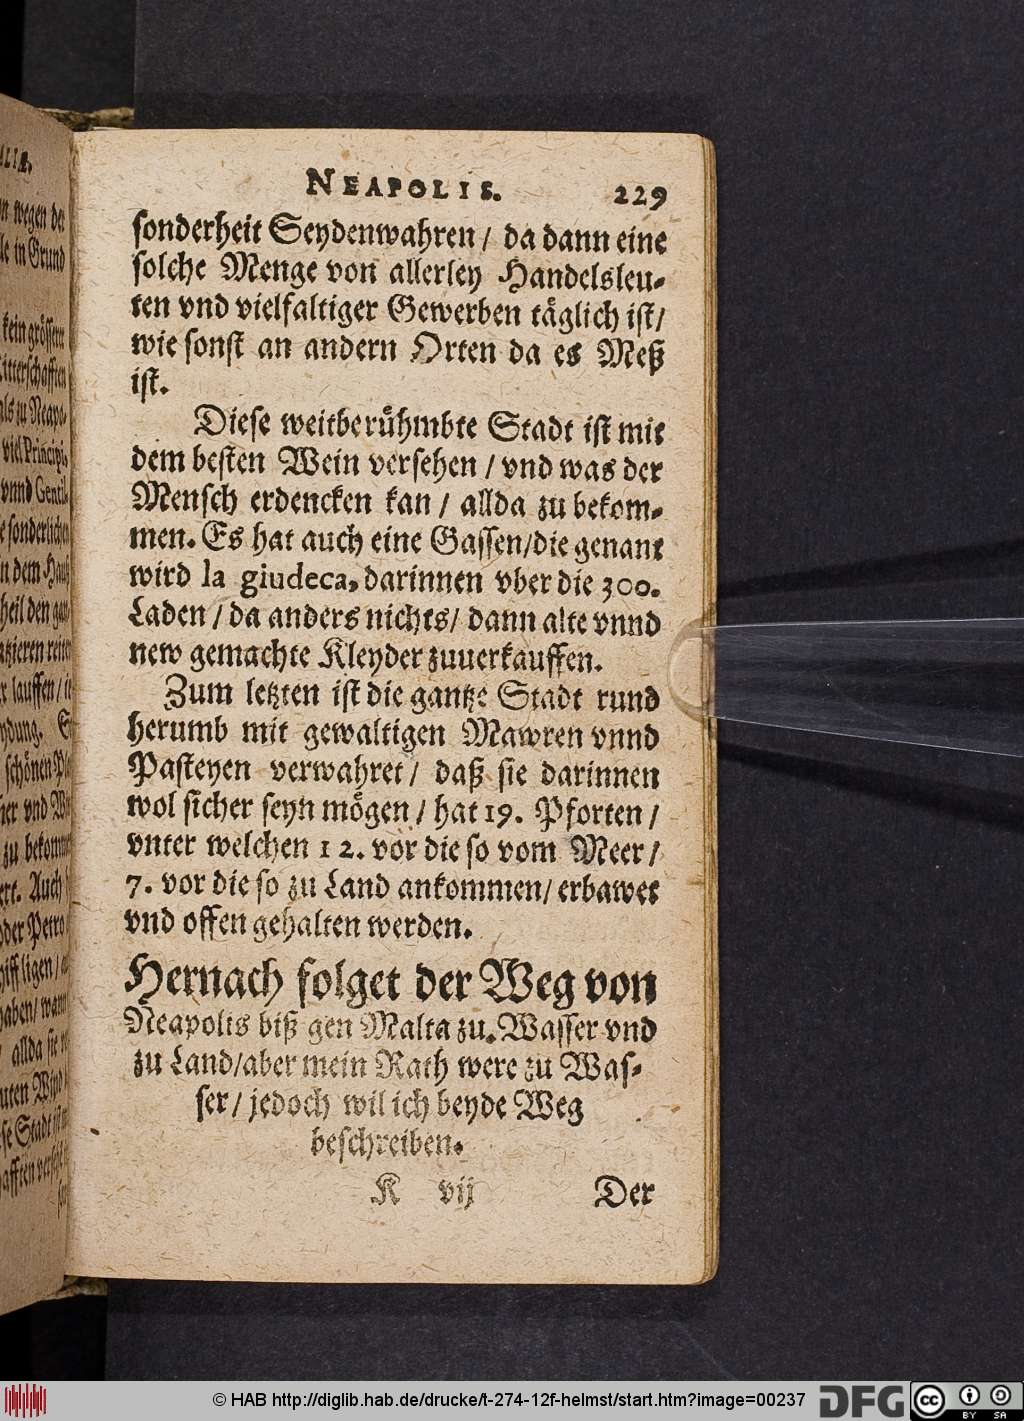 NEAPOLIS. 229
sonderheit Seydenwahren / da dann eine
solche Menge von allerley Handelsleu-
ten vnd vielfaltiger Gewerben täglich ist/
wie sonst an andern Orten da es Meß
ist.
Diese weitberühmbte Stadt ist mit
dem besten Wein versehen / vnd was der
Mensch erdencken kan / allda zu bekom-
men. Es hat auch eine Gassen/die genant
wird la giudeca, darinnen vber die 300.
Laden / da anders nichts/ dann alte vnnd
new gemachte Kleyder zuuerkauffen.
Zum letzten ist die gantze Stadt rund
herumb mit gewaltigen Mawren vnnd
Pasteyen verwahret / daß sie darinnen
wol sicher seyn mögen / hat 19. Pforten /
vnter welchen 12. vor die so vom Meer /
7. vor die so zu Land ankommen/ erbawet
vnd offen gehalten werden.
Hernach folget der Weg von
Neapolis biß gen Malta zu. Wasser vnd
zu Land/aber mein Rath were zu Was-
ser / jedoch wil ich beyde Weg
beschreiben.
K vij Der
wegen der
in Grund
kein grössern
zu Neapo-
viel Principi,
vnnd Gentil-
sonderlichen
dem Hauß
theil den
lauffen /
schönen
vnd
zu
Auch
oder Petro
ligen /
allda sie
guten Wind
Stadt
© HAB http://diglib.hab.de/drucke/t-274-12f-helmst/start.htm?image=00237
DFG
cc
BY SA